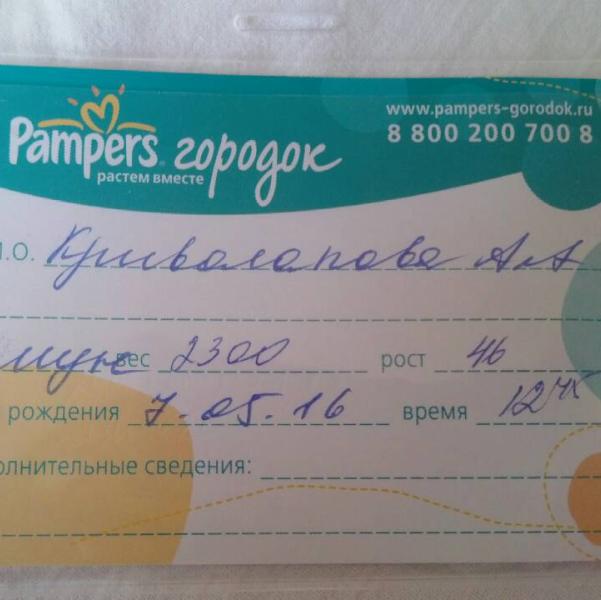 www.pampers-gorodok.ru
8 800 200 700 8
Pampers городок
растем вместе
И.О. Криволапова А А
вес 2300 рост 46
рождения 7.05.16 время
олнительные сведения: